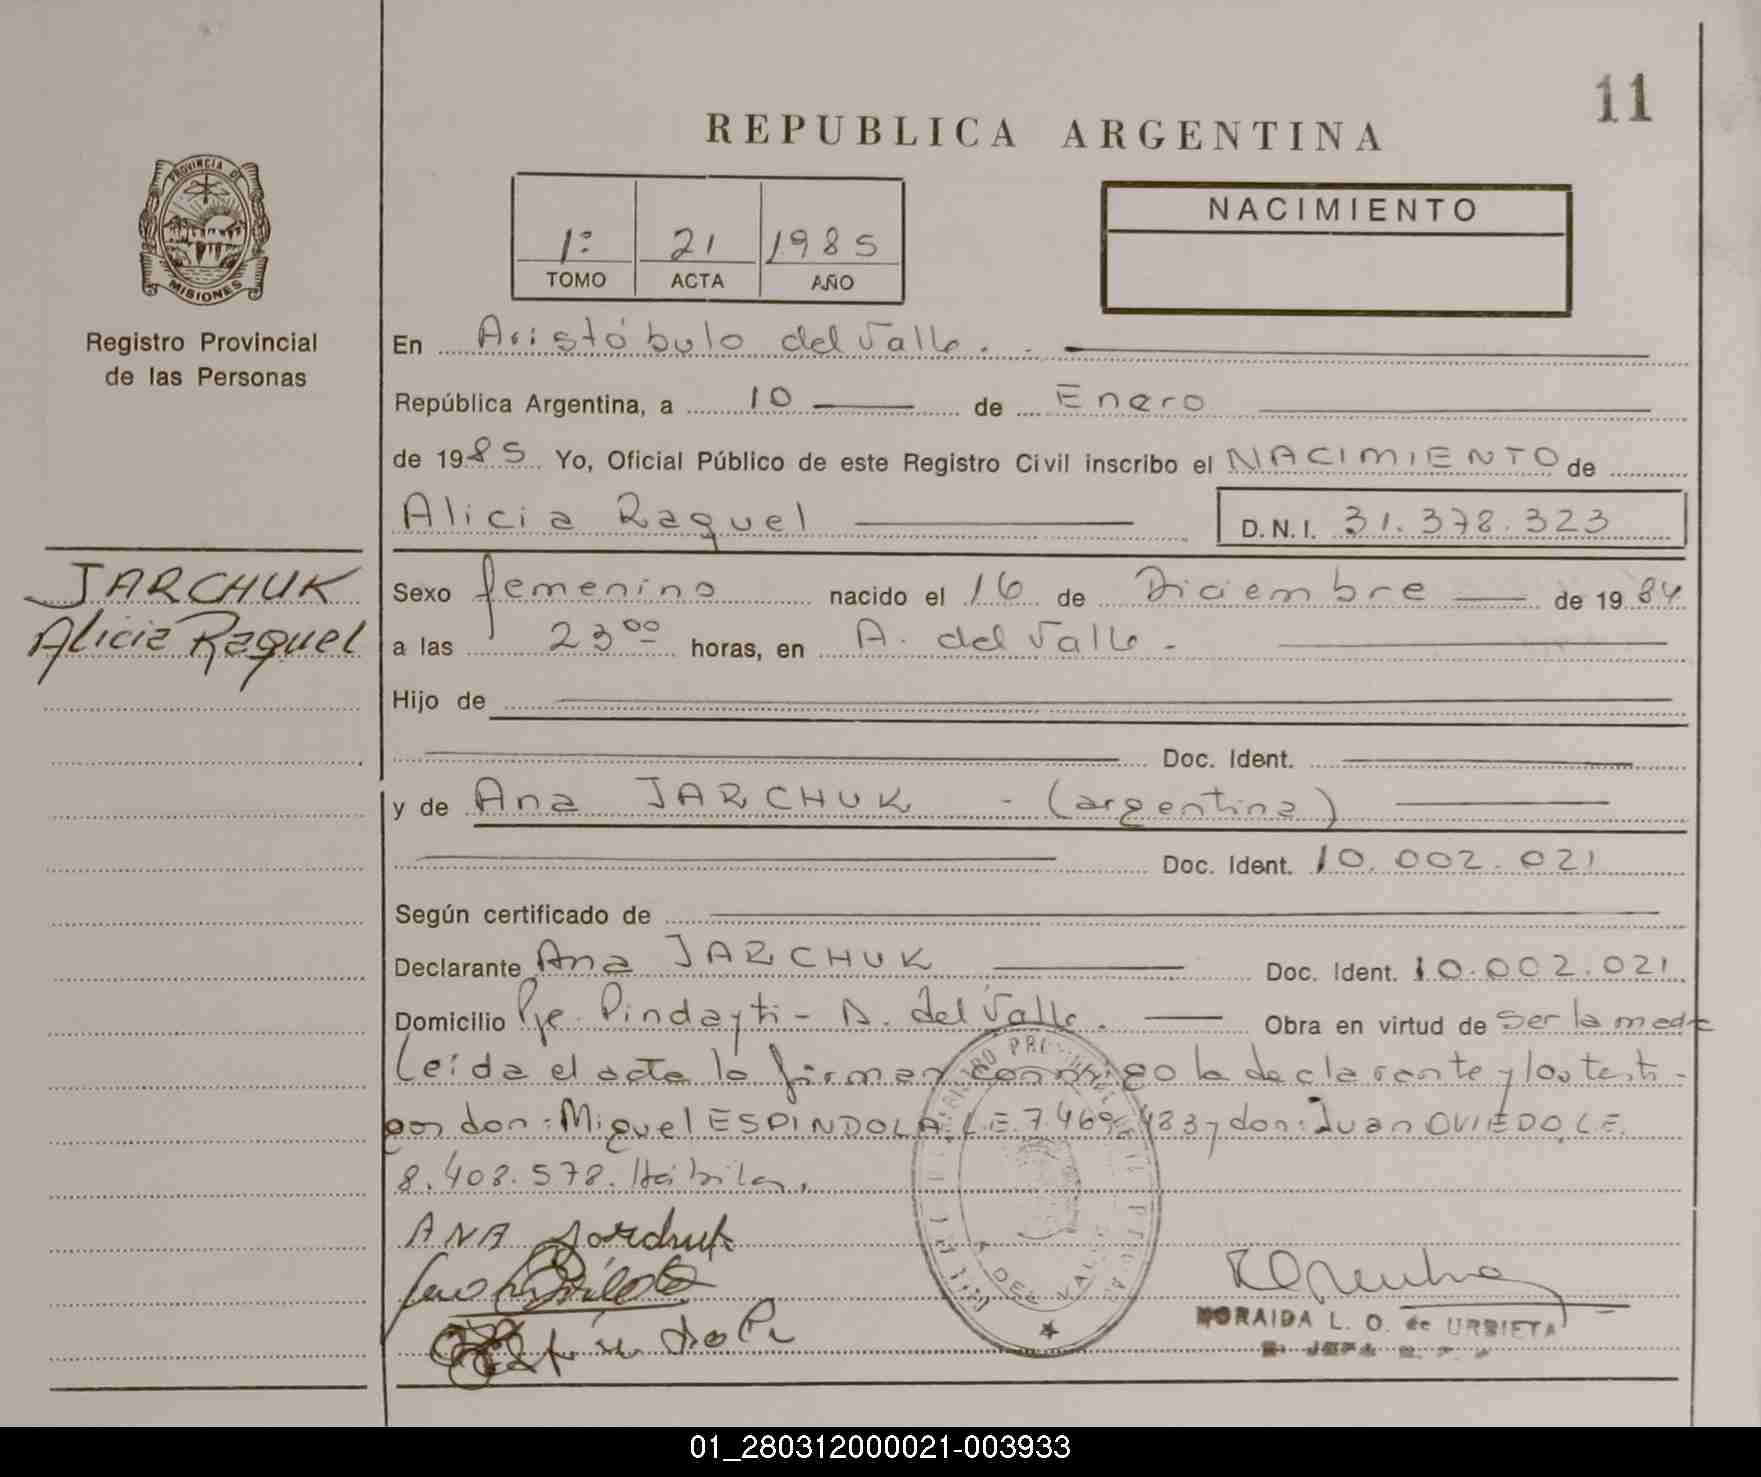 11
REPUBLICA ARGENTINA
PROVINCIA DE
MISIONES
Registro Provincial
de las Personas
1º 21 1985
TOMO ACTA AÑO
NACIMIENTO
En Aristóbulo del Valle.
República Argentina, a 10 de Enero
de 1985 Yo, Oficial Público de este Registro Civil inscribo el NACIMIENTO de
Alicia Raquel D.N.I. 31.378.323
JARCHUK
Alicia Raquel
Sexo femenino nacido el 16 de Diciembre de 1984
a las 23 00 horas, en A. del Valle.
Hijo de
Doc. Ident.
y de Ana JARCHUK - (argentina)
Doc. Ident. 10.002.021
Según certificado de
Declarante Ana JARCHUK Doc. Ident. 10.002.021
Domicilio Pje. Pindayti - A. del Valle. Obra en virtud de ser la madre
Leída el acta la firman conmigo la declarante y los testi-
gos don: Miguel ESPINDOLA L.E. 7.469. y don: Juan OVIEDO L.E.
8.408.578. Hábiles.
ANA Jarchuk
NORAIDA L. O. de URBIETA
A. DEL VALLE
01_280312000021-003933